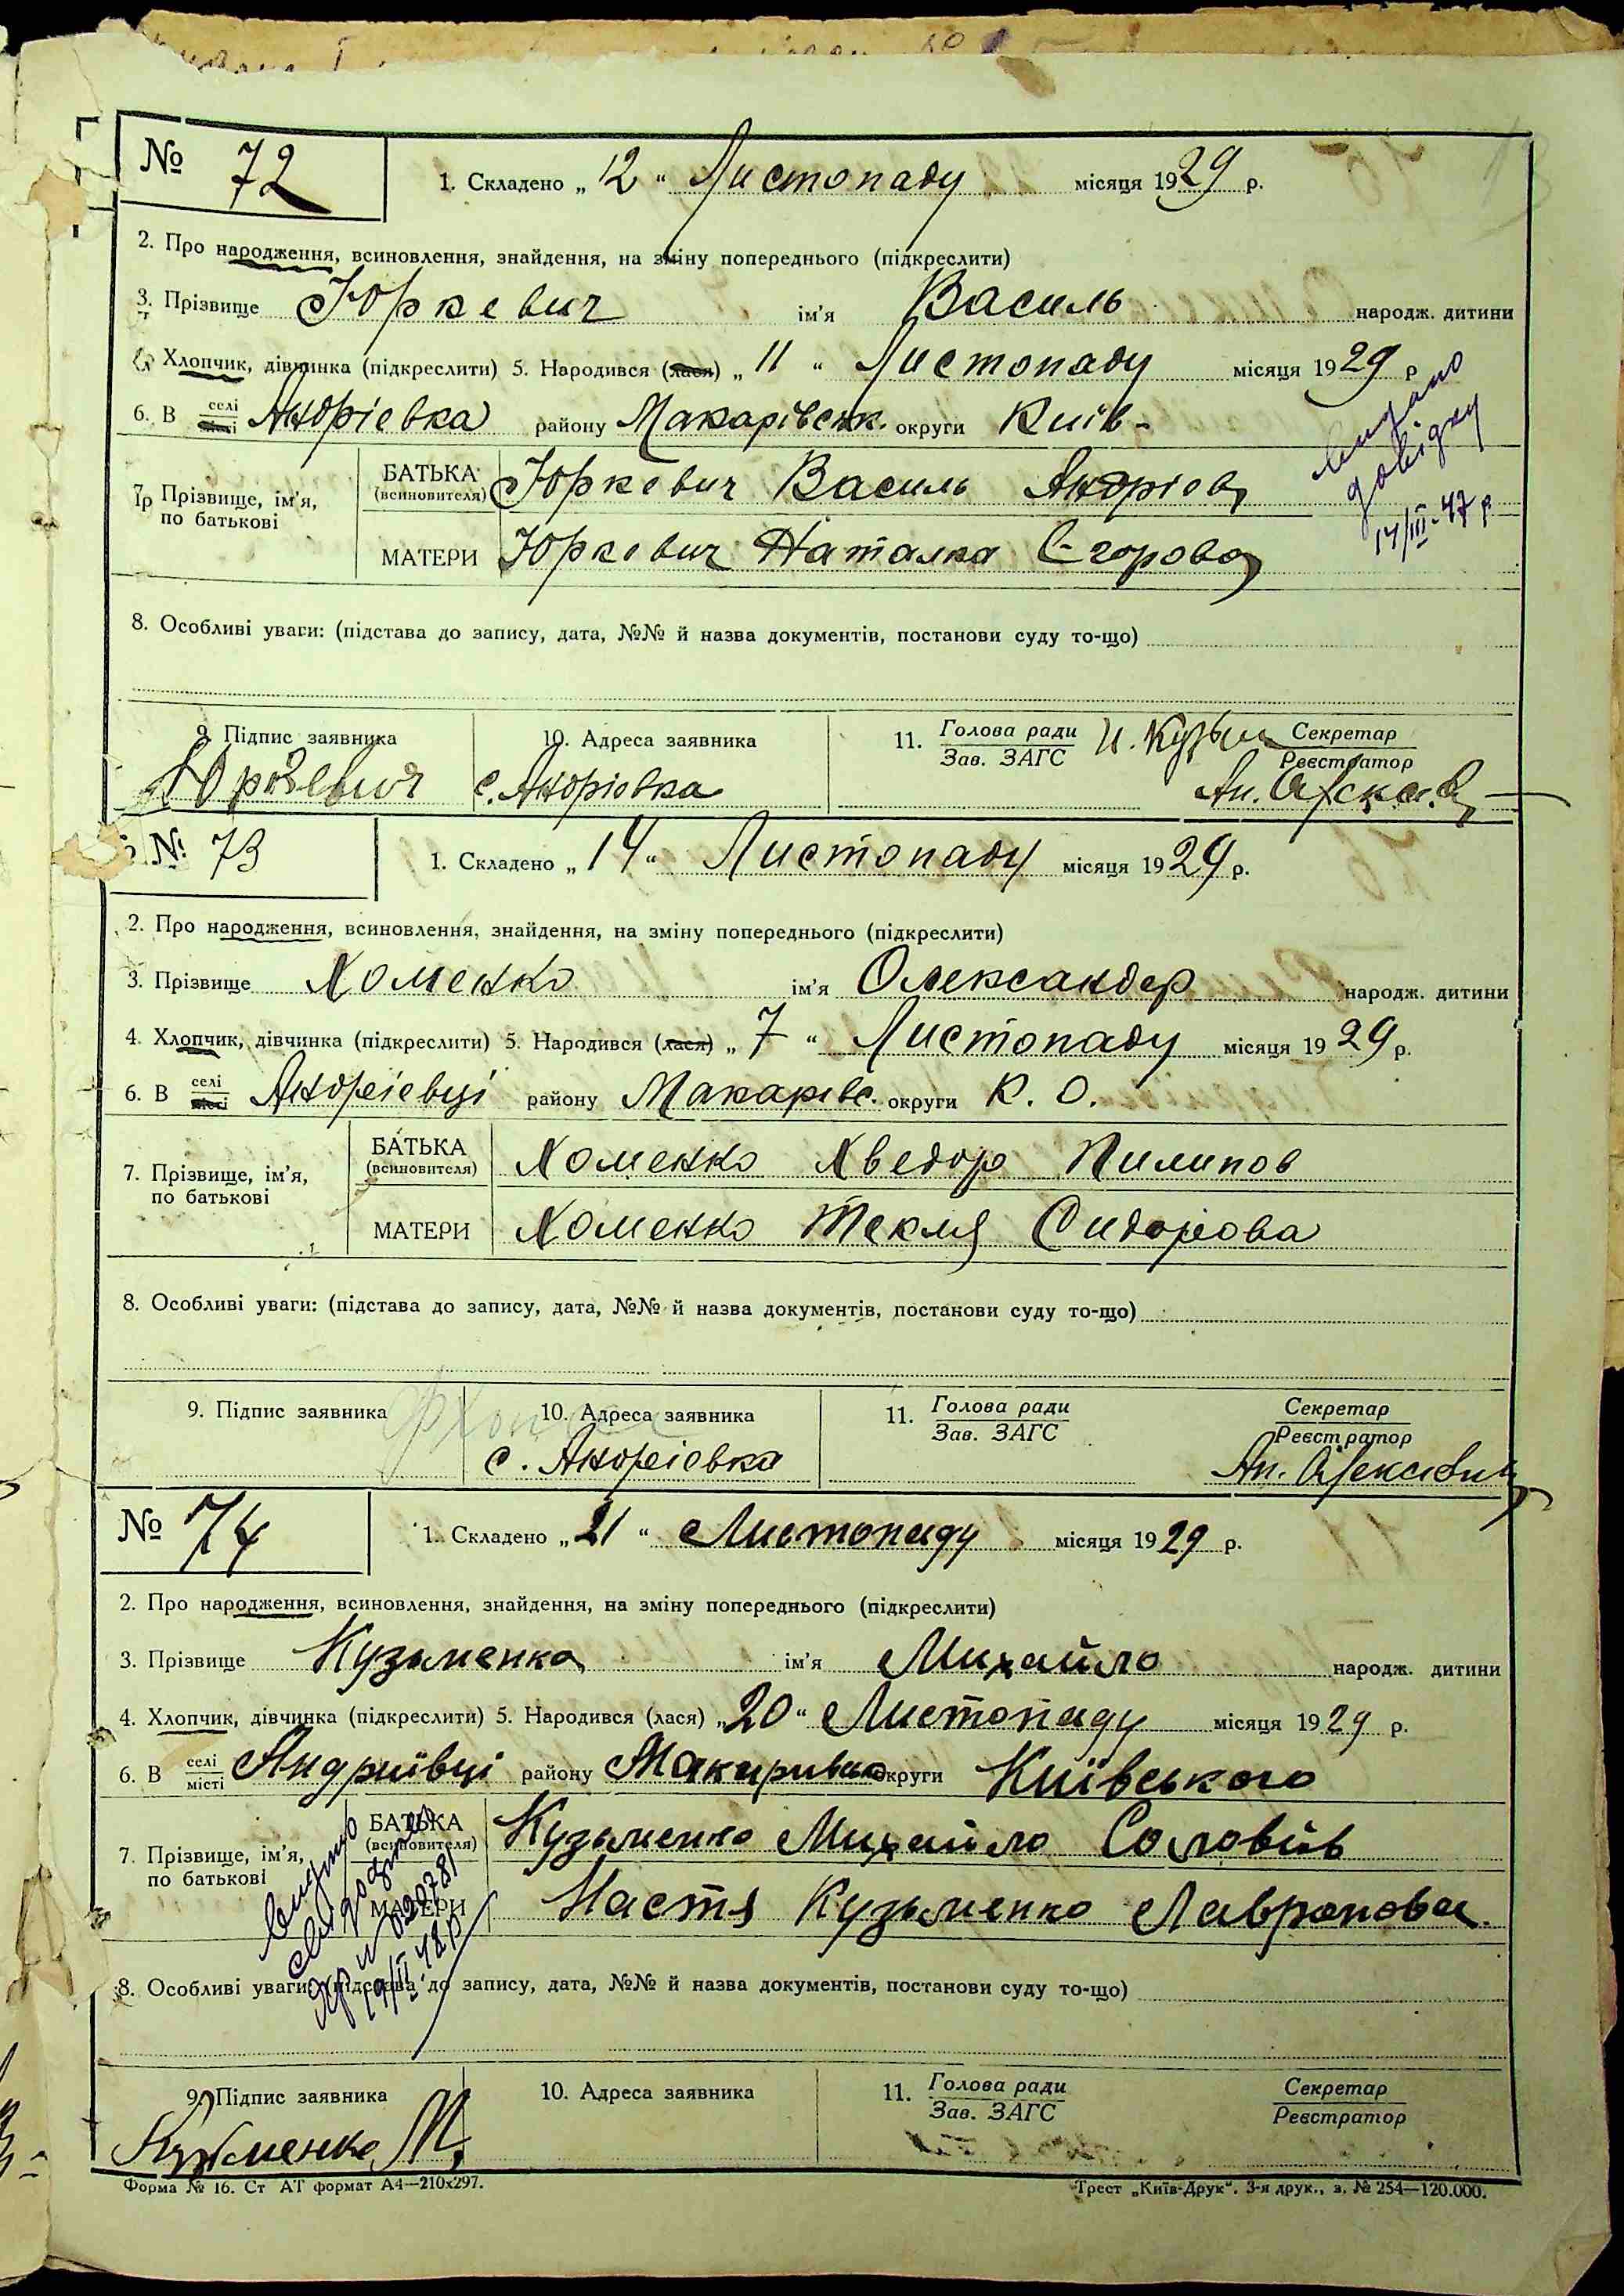 № 72
1. Складено „12“ Листопаду місяця 1929 р.
2. Про народження, всиновлення, знайдення, на зміну попереднього (підкреслити)
3. Прізвище Юркевич ім'я Василь народж. дитини
Хлопчик, дівчинка (підкреслити) 5. Народився (лася) „11“ Листопаду місяця 1929 р
6. В селі місті Андрієвка району Макарівськ. округи Київ-
видано
довідку
14/III-47 р
7. Прізвище, ім'я, по батькові
БАТЬКА (всиновителя) Юркевич Василь Андріев
МАТЕРИ Юркевич Наталка Єгорова
8. Особливі уваги: (підстава до запису, дата, №№ й назва документів, постанови суду то-що)
9. Підпис заявника 10. Адреса заявника 11. Голова ради Зав. ЗАГС И. Кузьм Секретар Реєстратор
Юркевич с. Андріовка Ан.
№ 73
1. Складено „14“ Листопаду місяця 1929 р.
2. Про народження, всиновлення, знайдення, на зміну попереднього (підкреслити)
3. Прізвище Хоменко ім'я Олександер народж. дитини
4. Хлопчик, дівчинка (підкреслити) 5. Народився (лася) „7“ Листопаду місяця 1929 р.
6. В селі місті Андрієвці району Макарівс. округи К. О.
7. Прізвище, ім'я, по батькові
БАТЬКА (всиновителя) Хоменко Хведор Пилипов
МАТЕРИ Хоменко Текля Сидорова
8. Особливі уваги: (підстава до запису, дата, №№ й назва документів, постанови суду то-що)
9. Підпис заявника 10. Адреса заявника 11. Голова ради Зав. ЗАГС Секретар Реєстратор
с. Андрієвка Ан.
№ 74
1. Складено „21“ Листопаду місяця 1929 р.
2. Про народження, всиновлення, знайдення, на зміну попереднього (підкреслити)
3. Прізвище Кузьменко ім'я Михайло народж. дитини
4. Хлопчик, дівчинка (підкреслити) 5. Народився (лася) „20“ Листопаду місяця 1929 р.
6. В селі місті Андриївці району округи Київського
7. Прізвище, ім'я, по батькові
БАТЬКА (всиновителя) Кузьменко Михайло Соловйів
МАТЕРИ Настя Кузьменко Лавронова
видано
19/II-48р
8. Особливі уваги: (підстава до запису, дата, №№ й назва документів, постанови суду то-що)
9. Підпис заявника 10. Адреса заявника 11. Голова ради Зав. ЗАГС Секретар Реєстратор
Кузьменко М,
Форма № 16. Ст АТ формат А4—210x297. Трест „Київ-Друк“. 3-я друк., з. № 254—120.000.